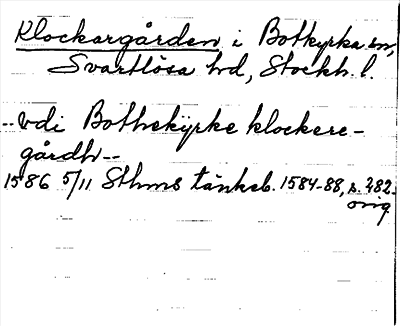 Klockargården i Botkyrka sn,
Svartlösa hd, Stockh. l.
-- vdi Bothekÿrke klockere-
gårdh --
1586 5/11 Sthms tänkeb. 1584-88, s. 282.
orig.